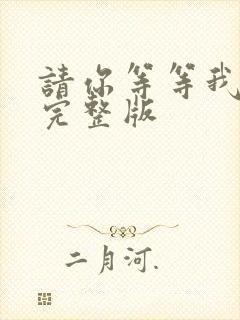 請你等等我
完整版
二月河.